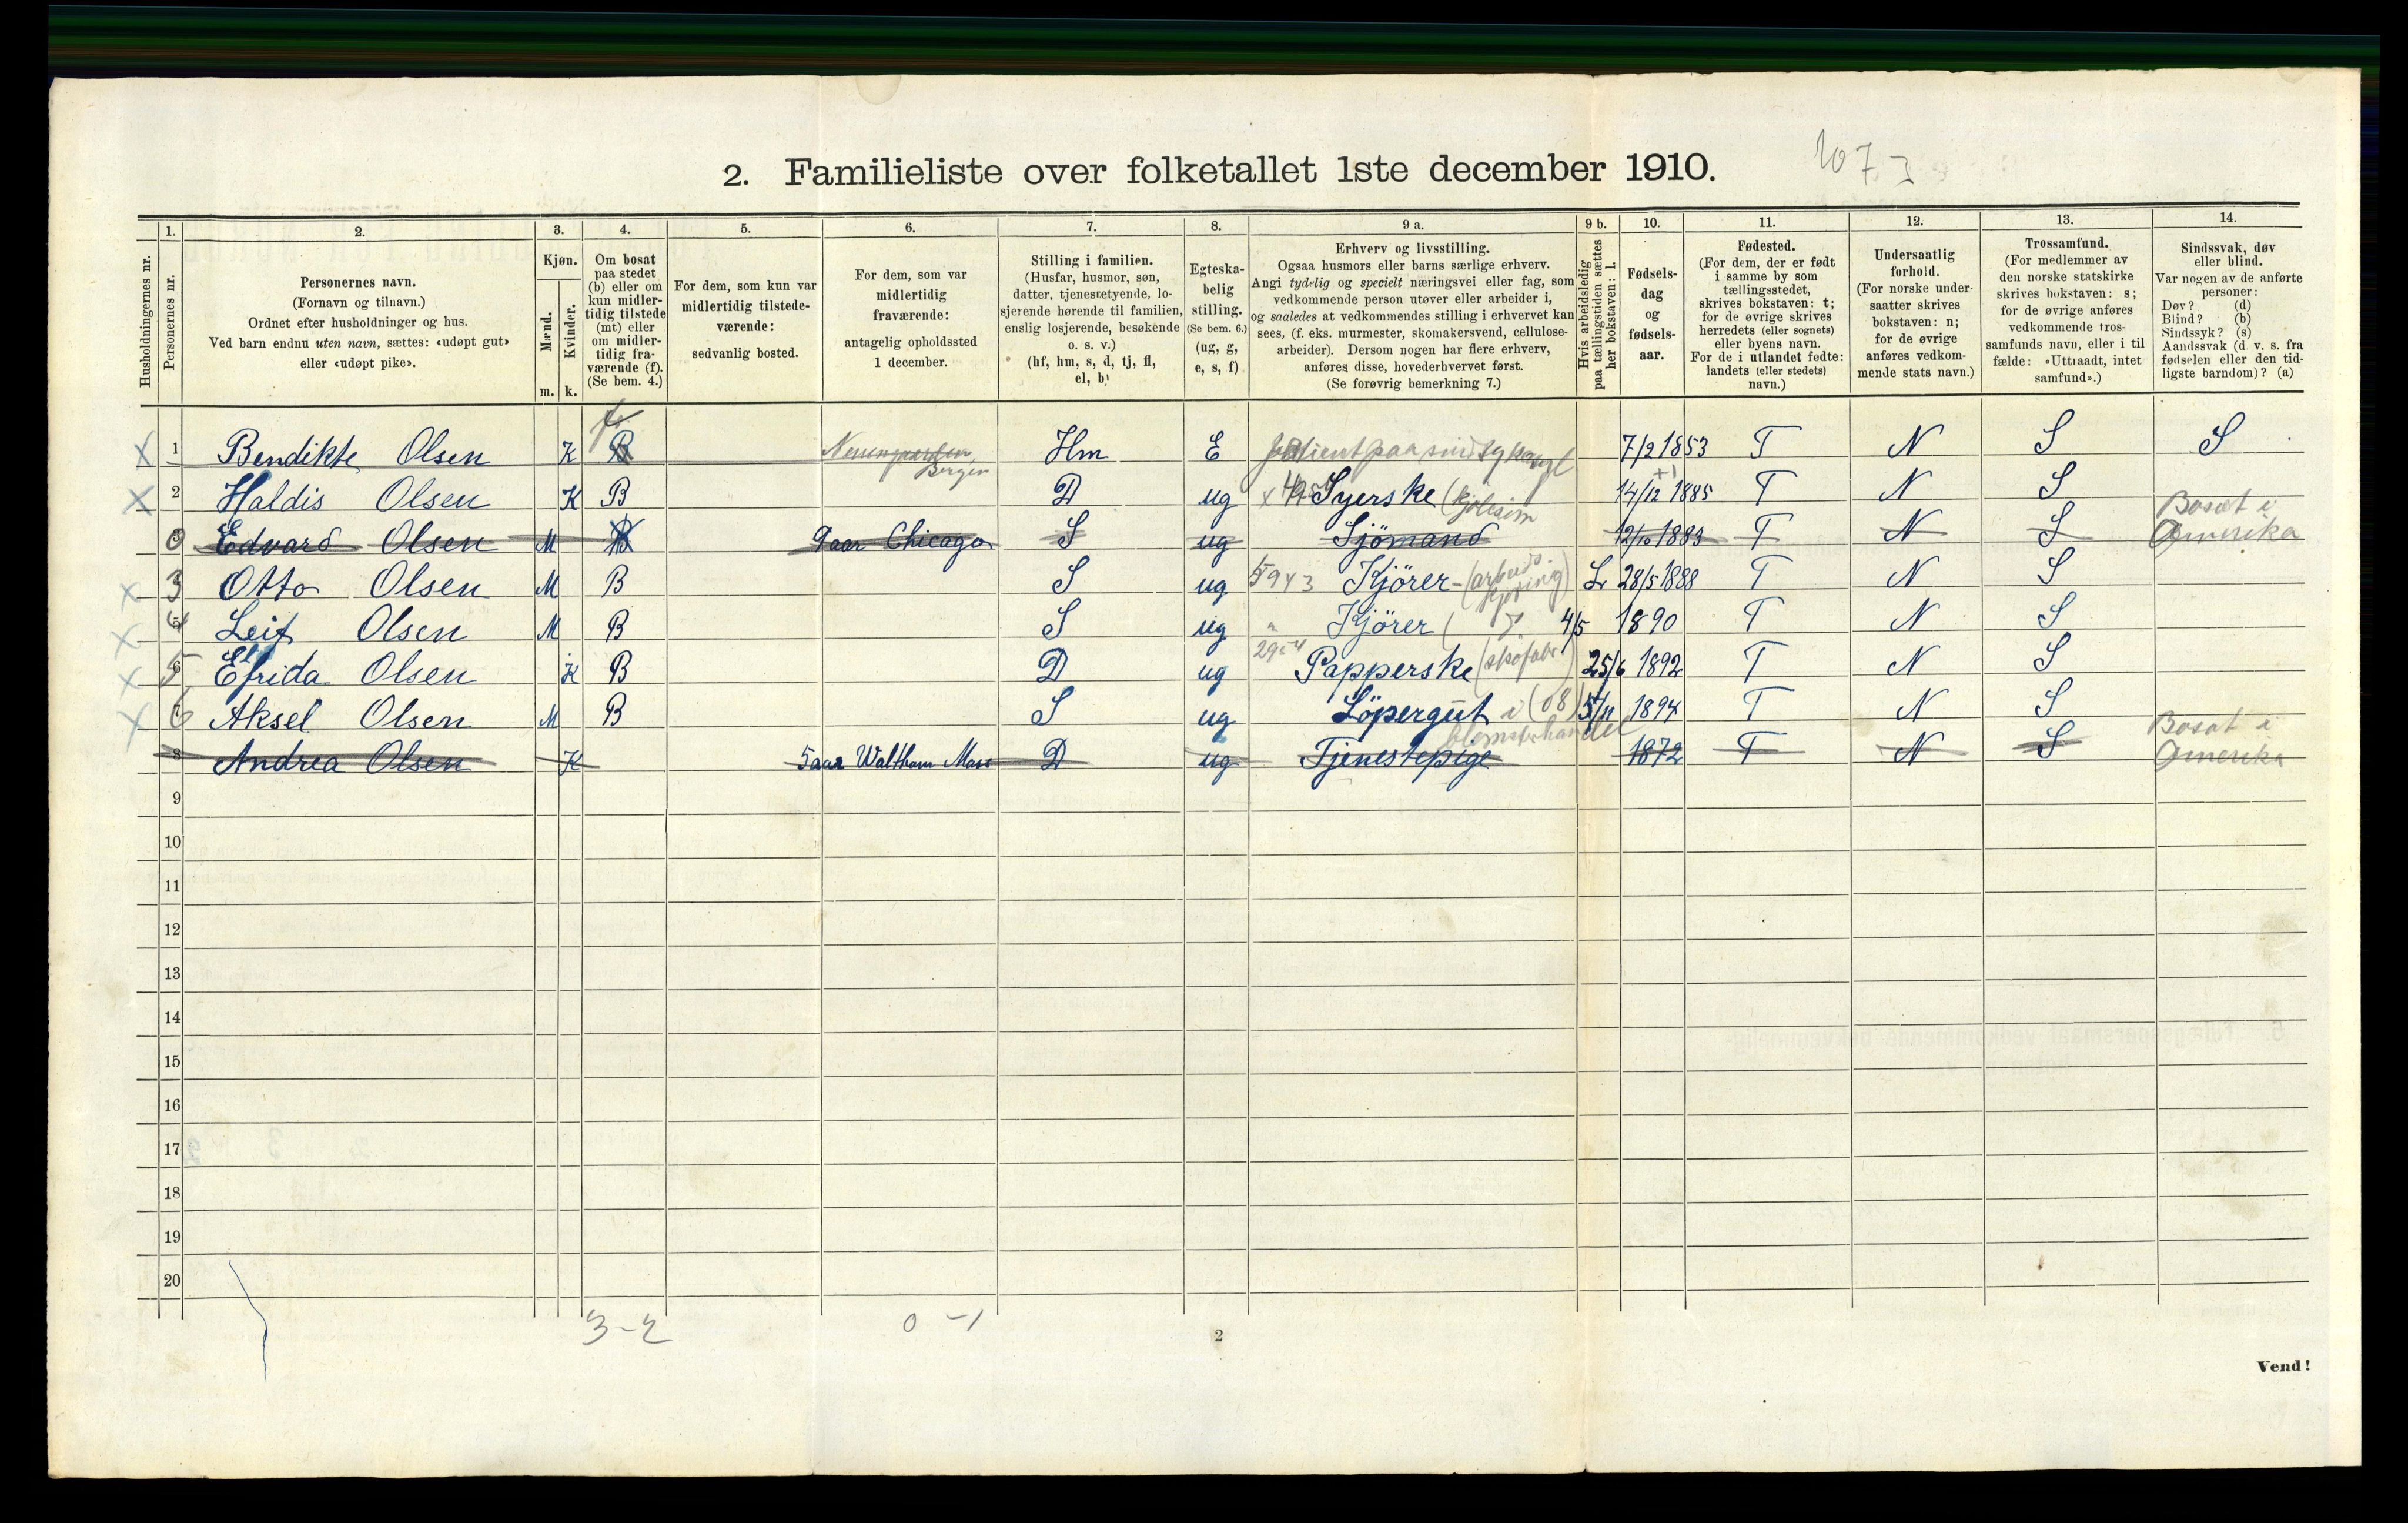 2. Familieliste over folketallet 1ste december 1910.
Husholdningernes nr.
1. Personernes nr.
2. Personernes navn. (Fornavn og tilnavn.) Ordnet efter husholdninger og hus. Ved barn endnu uten navn, sættes: «udøpt gut» eller «udøpt pike».
3. Kjøn. Mænd. m. Kvinder. k.
4. Om bosat paa stedet (b) eller om kun midlertidig tilstede (mt) eller om midlertidig fraværende (f). (Se bem. 4.)
5. For dem, som kun var midlertidig tilstedeværende: sedvanlig bosted.
6. For dem, som var midlertidig fraværende: antagelig opholdssted 1 december.
7. Stilling i familien. (Husfar, husmor, søn, datter, tjenestetyende, losjerende hørende til familien, enslig losjerende, besøkende o. s. v.) (hf, hm, s, d, tj, fl, el, b)
8. Egteskabelig stilling. (Se bem. 6.) (ug, g, e, s, f)
9 a. Erhverv og livsstilling. Ogsaa husmors eller barns særlige erhverv. Angi tydelig og specielt næringsvei eller fag, som vedkommende person utøver eller arbeider i, og saaledes at vedkommendes stilling i erhvervet kan sees, (f. eks. murmester, skomakersvend, cellulosearbeider). Dersom nogen har flere erhverv, anføres disse, hovederhvervet først. (Se forøvrig bemerkning 7.)
9 b. Hvis arbeidsledig paa tællingstiden sættes her bokstaven: l.
10. Fødselsdag og fødselsaar.
11. Fødested. (For dem, der er født i samme by som tællingsstedet, skrives bokstaven: t; for de øvrige skrives herredets (eller sognets) eller byens navn. For de i utlandet fødte: landets (eller stedets) navn.)
12. Undersaatlig forhold. (For norske undersaatter skrives bokstaven: n; for de øvrige anføres vedkommende stats navn.)
13. Trossamfund. (For medlemmer av den norske statskirke skrives bokstaven: s; for de øvrige anføres vedkommende trossamfunds navn, eller i tilfælde: «Uttraadt, intet samfund».)
14. Sindssvak, døv eller blind. Var nogen av de anførte personer: Døv? (d) Blind? (b) Sindssyk? (s) Aandssvak (d. v. s. fra fødselen eller den tidligste barndom)? (a)
X 1 Bendikte Olsen K B Bergen Hm E Patient paa 7/2 1853 T N S S
X 2 Haldis Olsen K B D ug Syerske 14/12 1885 T N S
3 0 Edvard Olsen M B 9 aar Chicago S ug Sjömand 12/10 1883 T N S Bosat i Amerika
X 4 3 Otto Olsen M B S ug 5943 Kjörer (arbeidskjøring) L 28/5 1888 T N S
X 5 4 Leif Olsen M B S ug " Kjörer 4/5 1890 T N S
X 6 5 Efrida Olsen K B D ug Papperske (skofabr.) 25/6 1892 T N S
X 7 6 Aksel Olsen M B S ug Löpergut i (08) blomsterhandel 5/11 1894 T N S
8 Andrea Olsen K 5 aar Waltham Mass D ug Tjenestepige 1872 T N S Bosat i Amerika
9
10
11
12
13
14
15
16
17
18
19
20
3-2 0-1
2
Vend!